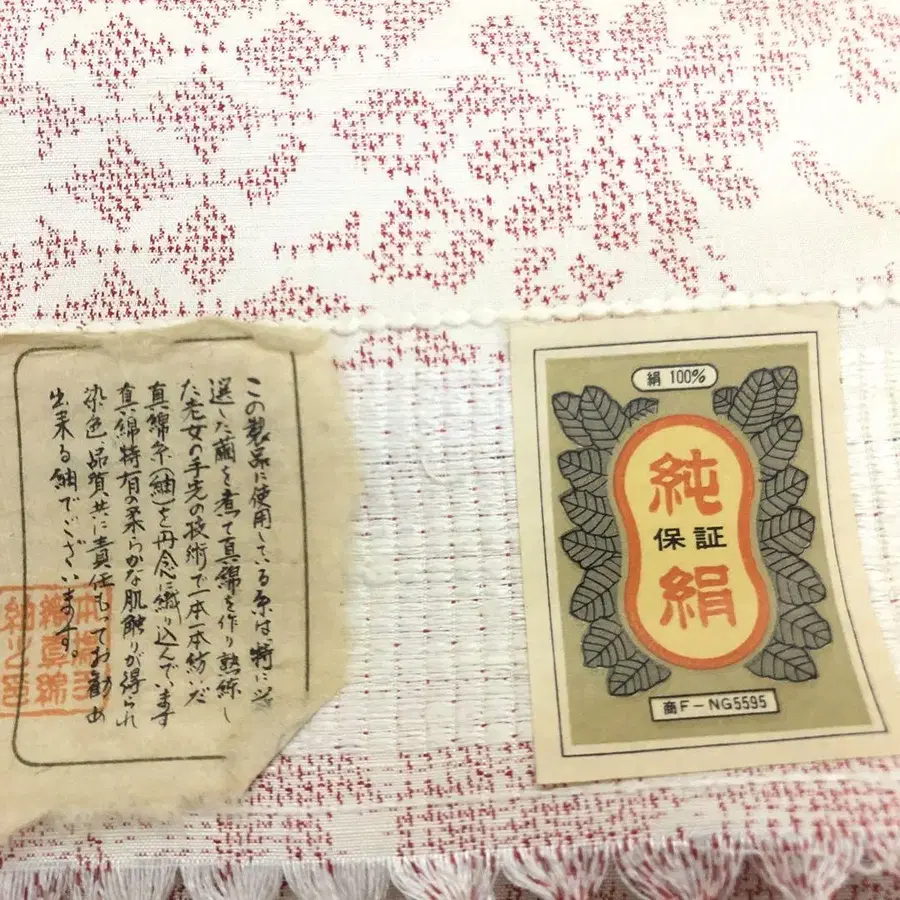 この製品に使用している糸は、特に
選した繭を煮て真綿を作り熟練し
た老女の手先の技術で一本一本紡いだ
真綿糸(紬)を丹念に織り込んでます
真綿特有の柔らかな肌触りが得られ
染色、品質共に責任もってお勧め
出来る紬でございます。
絹 100%
純
保証
絹
商F-NG5595